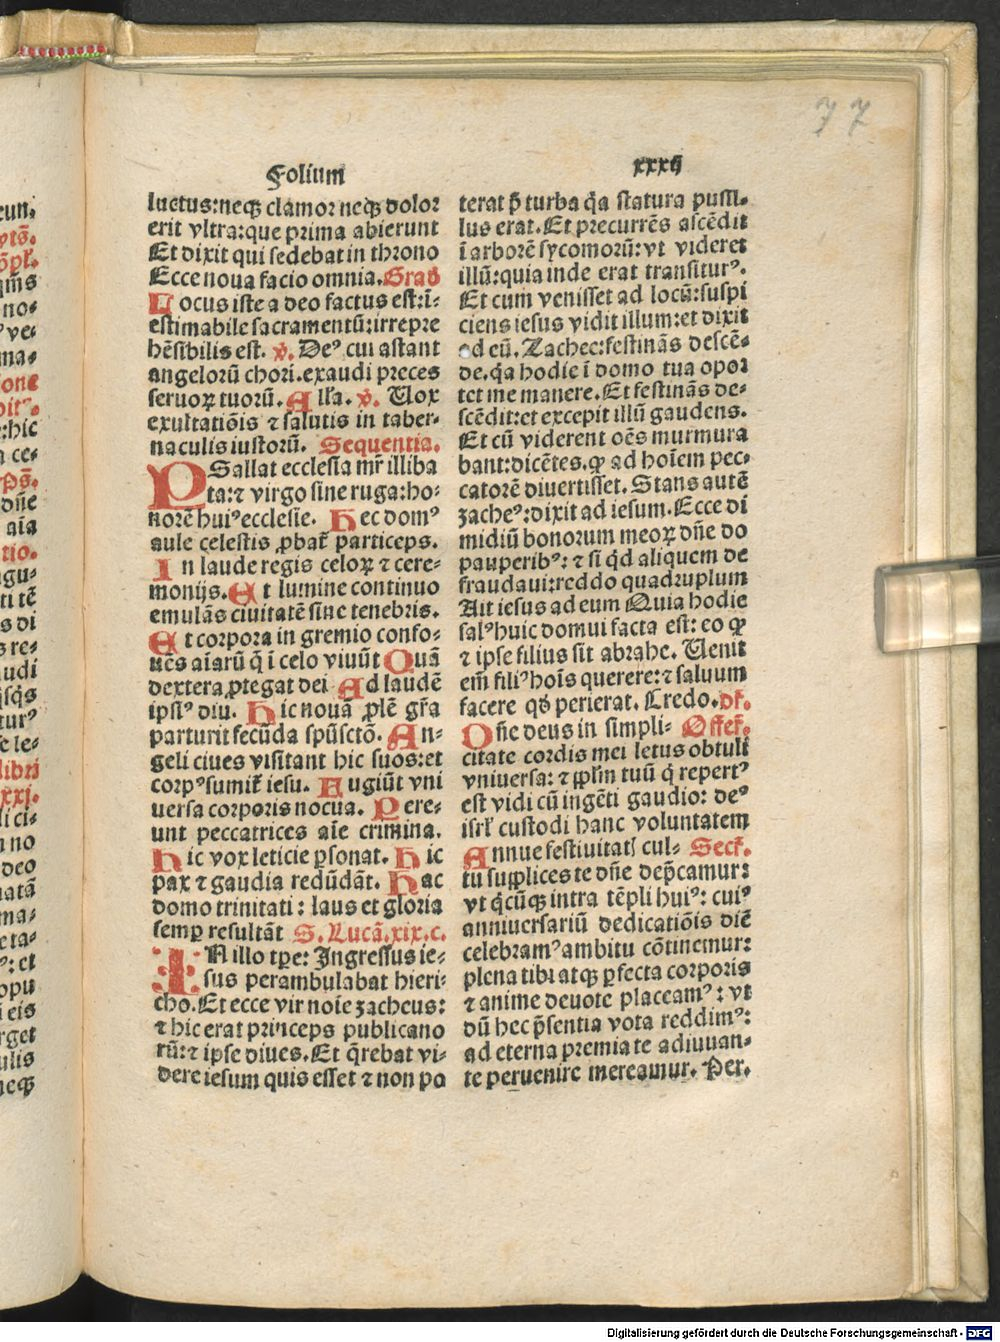 77
Folium xxxij
luctus:neqꝫ clamor neqꝫ dolor
erit vltra:que prima abierunt
Et dixit qui sedebat in throno
Ecce noua facio omnia. Grad̄
Locus iste a deo factus est:ī-
estimabile sacramentū:irrepre
hēsibilis est. ꝟ. Deꝰ cui astant
angelorū chori.exaudi preces
seruoꝝ tuorū. Alła. ꝟ. Uox
exultatiōis ⁊ salutis in taber-
naculis iustorū. Sequentia.
PSallat ecclesia mr̄ illiba
ta:⁊ virgo sine ruga:ho-
norē huiꝰ ecclesie. Hec domꝰ
aule celestis ꝓbat̄ particeps.
In laude regis celoꝝ ⁊ cere-
monijs. Et lumine continuo
emulās ciuitatē sine tenebris.
Et corpora in gremio confo-
uēs aīarū q̄ ī celo viuūt Quā
dextera ꝓtegat dei Ad laudē
ipsiꝰ diu. Hic nouā ꝓlē gr̄a
parturit fecūda spūsctō. An-
geli ciues visitant hic suos:et
corpꝰ sumit̄ iesu. Fugiūt vni
uersa corporis nocua. Pere-
unt peccatrices aīe crimina.
Hic vox leticie ꝑsonat. Hic
pax ⁊ gaudia redūdāt. Hac
domo trinitati: laus et gloria
semꝑ resultāt S. Lucā.xix.c.
IN illo tꝑe: Ingressus ie-
sus perambulabat hieri-
cho.Et ecce vir noīe zacheus:
⁊ hic erat princeps publicano
rū:⁊ ipse diues.Et q̄rebat vi-
dere iesum quis esset ⁊ non po
terat p̄ turba q̄a statura pusil-
lus erat.Et precurrēs ascēdit
ī arborē sycomorū:vt videret
illū:quia inde erat transiturꝰ.
Et cum venisset ad locū:suspi
ciens iesus vidit illum:et dixit
ad eū. Zachee:festinās descē-
de.q̄a hodie ī domo tua opor
tet me manere.Et festinās de-
scēdit:et excepit illū gaudens.
Et cū viderent oēs murmura
bant:dicētes.ꝙ ad hoīem pec-
catorē diuertisset. Stans autē
zacheꝰ:dixit ad iesum.Ecce di
midiū bonorum meoꝝ dn̄e do
pauperibꝰ: ⁊ si q̄d aliquem de
fraudaui:reddo quadruplum
Ait iesus ad eum Quia hodie
salꝰ huic domui facta est: eo ꝙ
⁊ ipse filius sit abrahe. Uenit
em̄ filiꝰ hoīs querere:⁊ saluum
facere qd̄ perierat. Credo. Of̄.
Dn̄e deus in simpli- Offer̄.
citate cordis mei letus obtuli
vniuersa: ⁊ pplm̄ tuū q̄ repertꝰ
est vidi cū ingēti gaudio: deꝰ
isrł custodi hanc voluntatem
Annue festiuitatꝭ cul- Secr̄.
tu supplices te dn̄e dep̄camur:
vt q̄cūqꝫ intra tēpli huiꝰ: cuiꝰ
anniuersariū dedicatiōis diē
celebramꝰ ambitu cōtinemur:
plena tibi atqꝫ ꝑfecta corporis
⁊ anime deuote placeamꝰ: vt
dū hec p̄sentia vota reddimꝰ:
ad eterna premia te adiuuan-
te peruenire mereamur. Per.
Digitalisierung gefördert durch die Deutsche Forschungsgemeinschaft - DFG